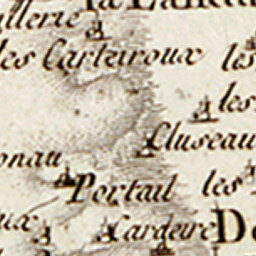 llerie
les Carteiroux les
les
Cluseau
onau
Portail les
ux Cardeire De